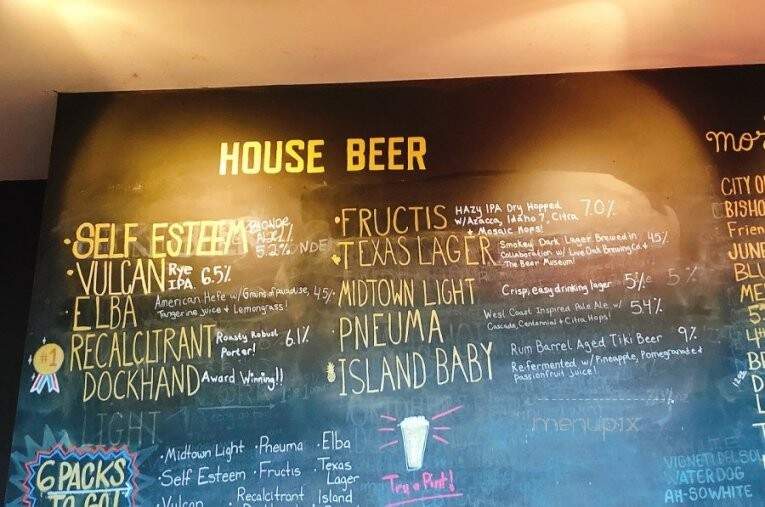 HOUSE BEER
SELF ESTEEM BLONDE ALE 5.2%
VULCAN Rye IPA 6.5%
ELBA American Hefe w/ Grains of paradise, Tangerine juice + Lemongrass! 4.5%
#1
RECALCITRANT Roasty Robust Porter! 6.1%
DOCKHAND Award Winning!!
LIGHT
FRUCTIS HAZY IPA Dry Hopped w/ Azacca, Idaho 7, Citra + Mosaic Hops! 7.0%
TEXAS LAGER Smokey Dark Lager Brewed in Collaboration w/ Live Oak Brewing Co. + The Beer Museum! 4.5%
MIDTOWN LIGHT Crisp, easy drinking lager 5% 5%
PNEUMA West Coast Inspired Pale Ale w/ Cascade, Centennial + Citra Hops! 5.4%
ISLAND BABY Rum Barrel Aged Tiki Beer 9%
Re-fermented w/ Pineapple, Pomegranate & passionfruit juice!
6 PACKS
TO GO!
Midtown Light · Pneuma · Elba
Self Esteem · Fructis · Texas Lager
Vulcan Recalcitrant Island
Try a Pint!
CITY O
BISHO
Frien
JUNE
BLU
ME
VIGNETI DEL SOL
WATERDOG
AH-SO WHITE
menupix